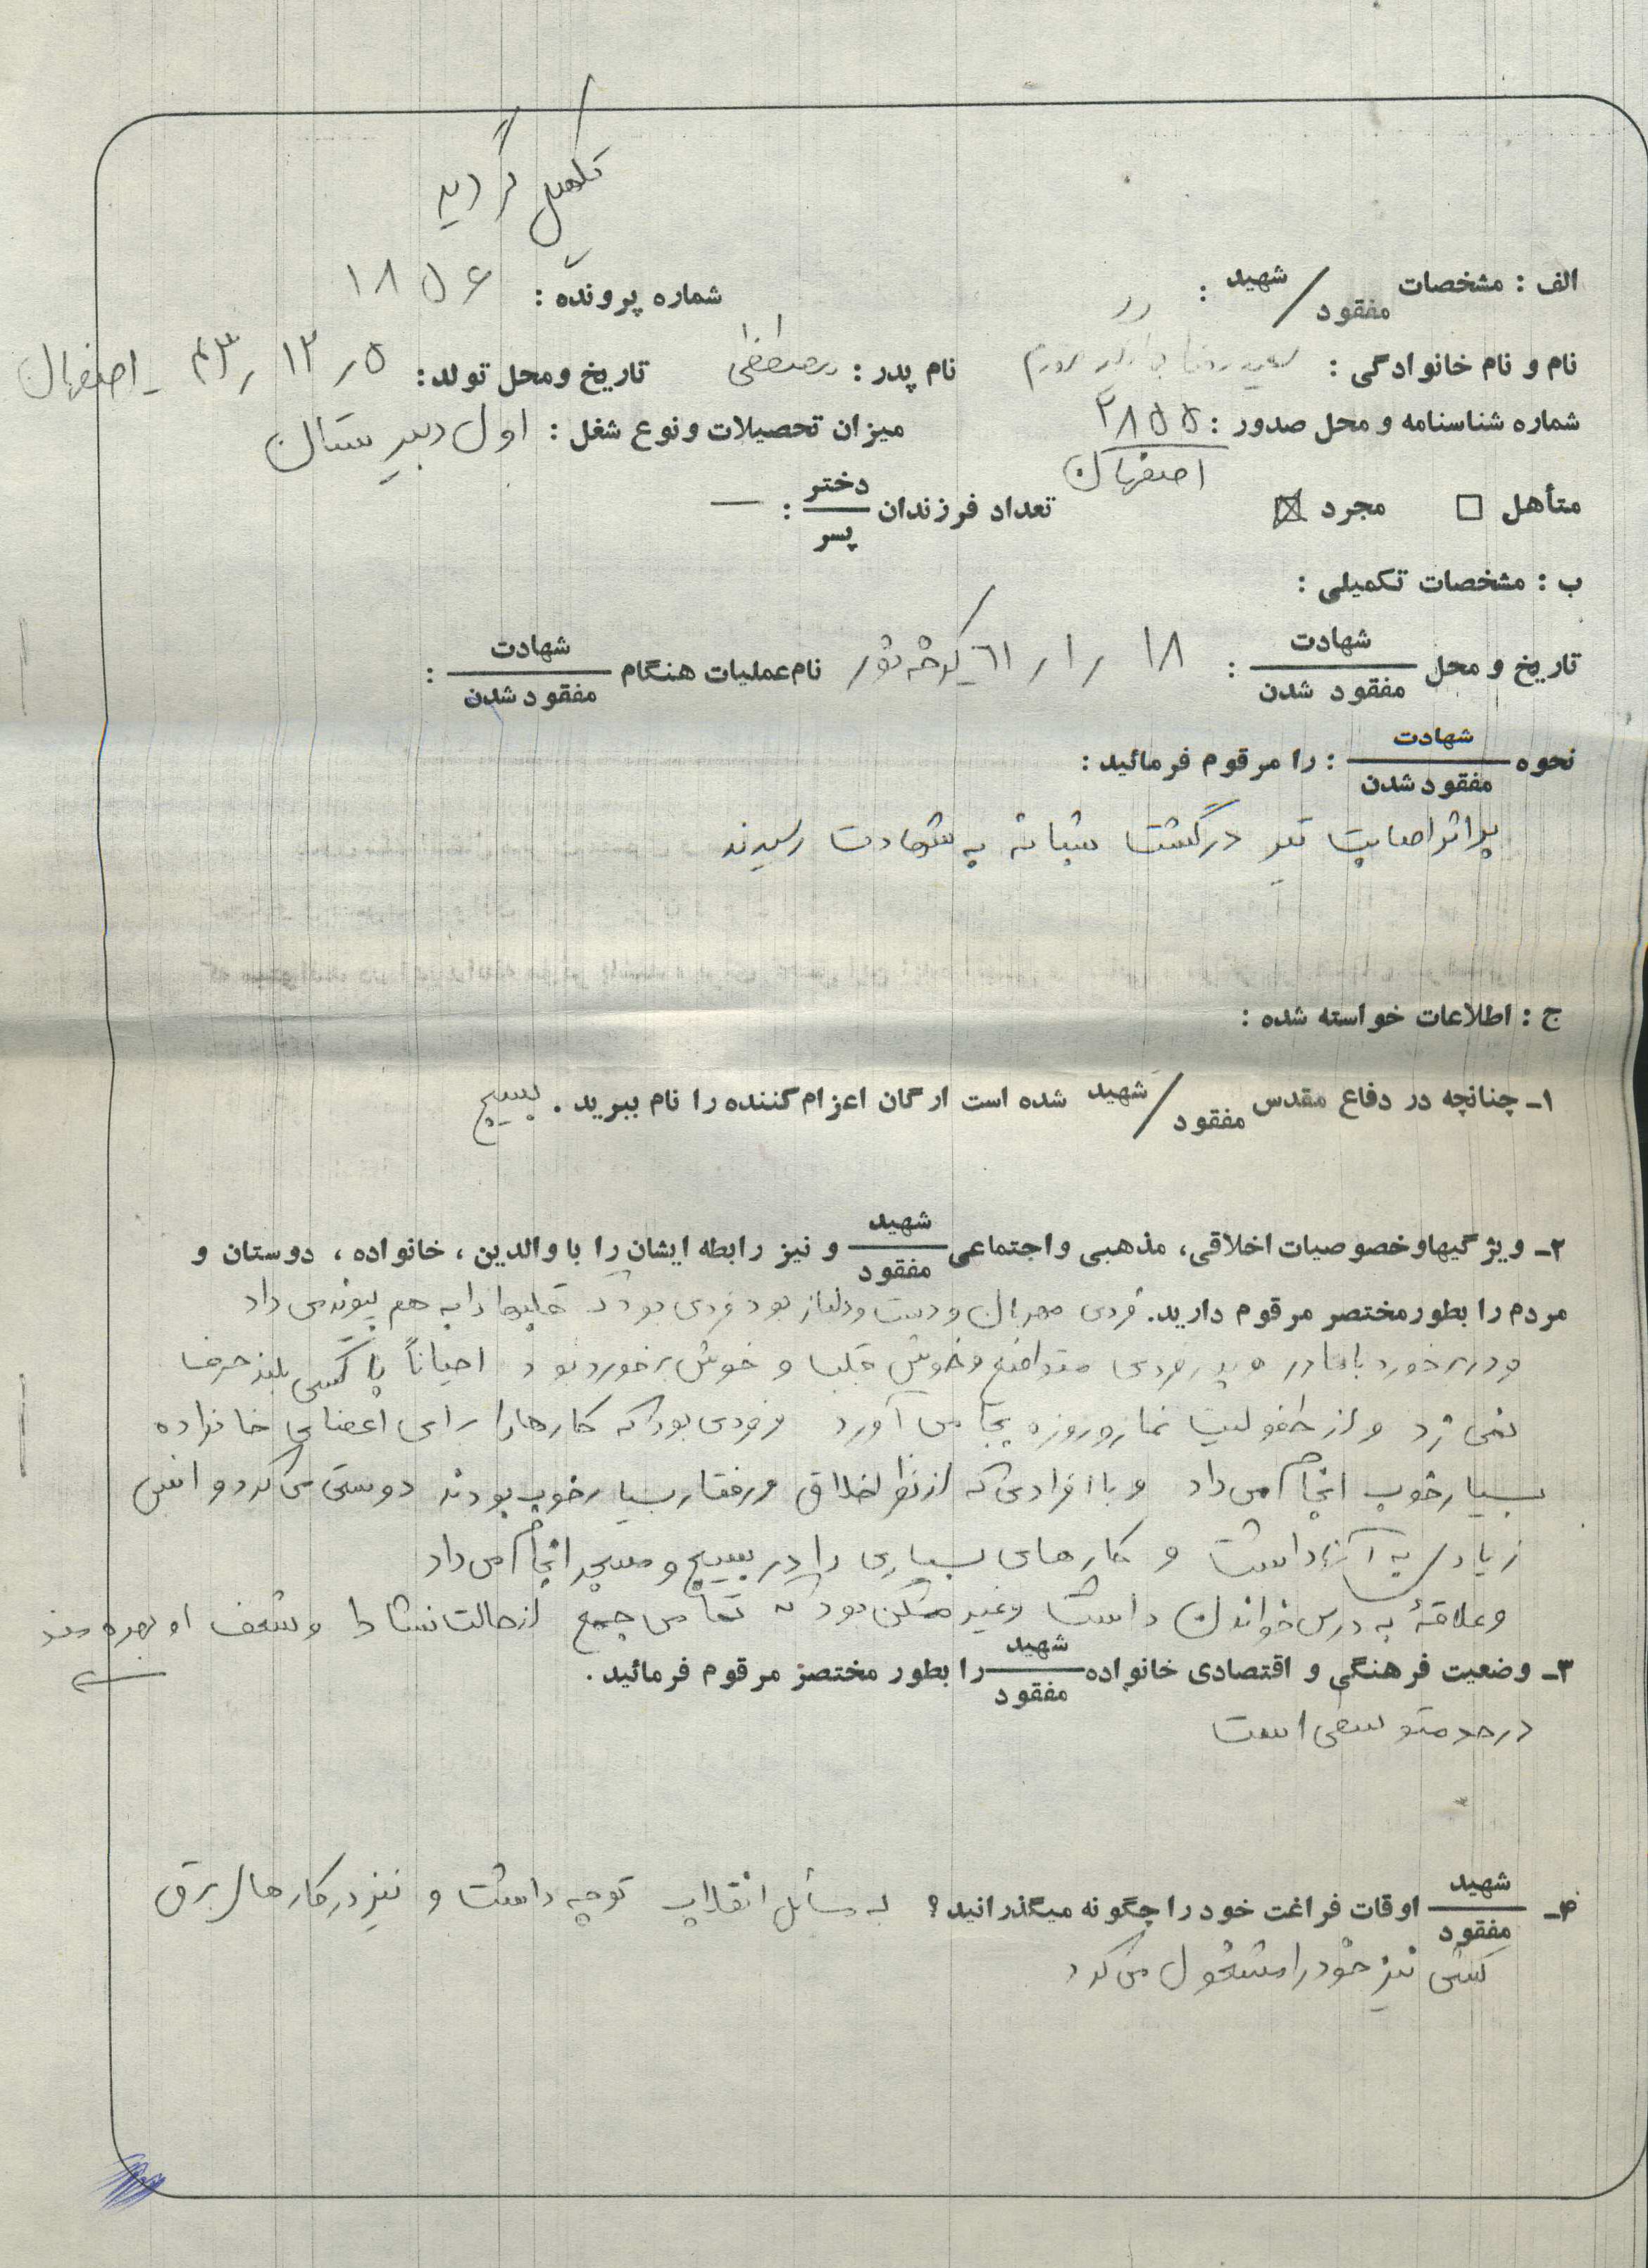 تکمیل گردید
الف : مشخصات شهید / مفقود :
شماره پرونده : ۱۸۵۶
نام و نام خانوادگی : سعیدرضا
نام پدر : مصطفی
تاریخ و محل تولد : ۵ ر ۱۲ ر ۴۳ - اصفهان
شماره شناسنامه و محل صدور : ۲۸۵۵ اصفهان
میزان تحصیلات و نوع شغل : اول دبیرستان
متأهل □ مجرد ☒ تعداد فرزندان دختر / پسر : —
ب : مشخصات تکمیلی :
تاریخ و محل شهادت / مفقود شدن : ۱۸ ر ۱ ر ۶۱ نام عملیات هنگام شهادت / مفقود شدن :
نحوه شهادت / مفقود شدن : را مرقوم فرمائید :
براثر اصابت تیر در گشت شبانه به شهادت رسیدند
ج : اطلاعات خواسته شده :
۱- چنانچه در دفاع مقدس شهید / مفقود شده است ارگان اعزام کننده را نام ببرید . بسیج
۲- ویژگیها و خصوصیات اخلاقی، مذهبی و اجتماعی شهید / مفقود و نیز رابطه ایشان را با والدین ، خانواده ، دوستان و
مردم را بطور مختصر مرقوم دارید. فردی مهربان و دست و دلباز بود فردی بود که قلبها را به هم پیوند می داد
و در برخورد با مادر و پدر فردی متواضع و خوش قلب و خوش برخورد بود احیاناً با کسی بلند حرف
نمی زد و از طفولیت نماز و روزه بجا می آورد و فردی بود که کارها را برای اعضای خانواده
بسیار خوب انجام می داد و با افرادی که از نظر اخلاق و رفتار بسیار خوب بودند دوستی می کرد و انس
زیادی به آنها داشت و کارهای بسیاری را در بسیج و مسجد انجام می داد
و علاقهٔ به درس خواندن داشت و غیر ممکن بود که تمامی جمع از حالت نشاط و شعف او بهره مند
۳- وضعیت فرهنگی و اقتصادی خانواده شهید / مفقود را بطور مختصر مرقوم فرمائید .
در حد متوسطی است
۴- شهید / مفقود اوقات فراغت خود را چگونه میگذرانید؟ به مسائل انقلاب توجه داشت و نیز در کارهای برق
کشی نیز خود را مشغول می کرد